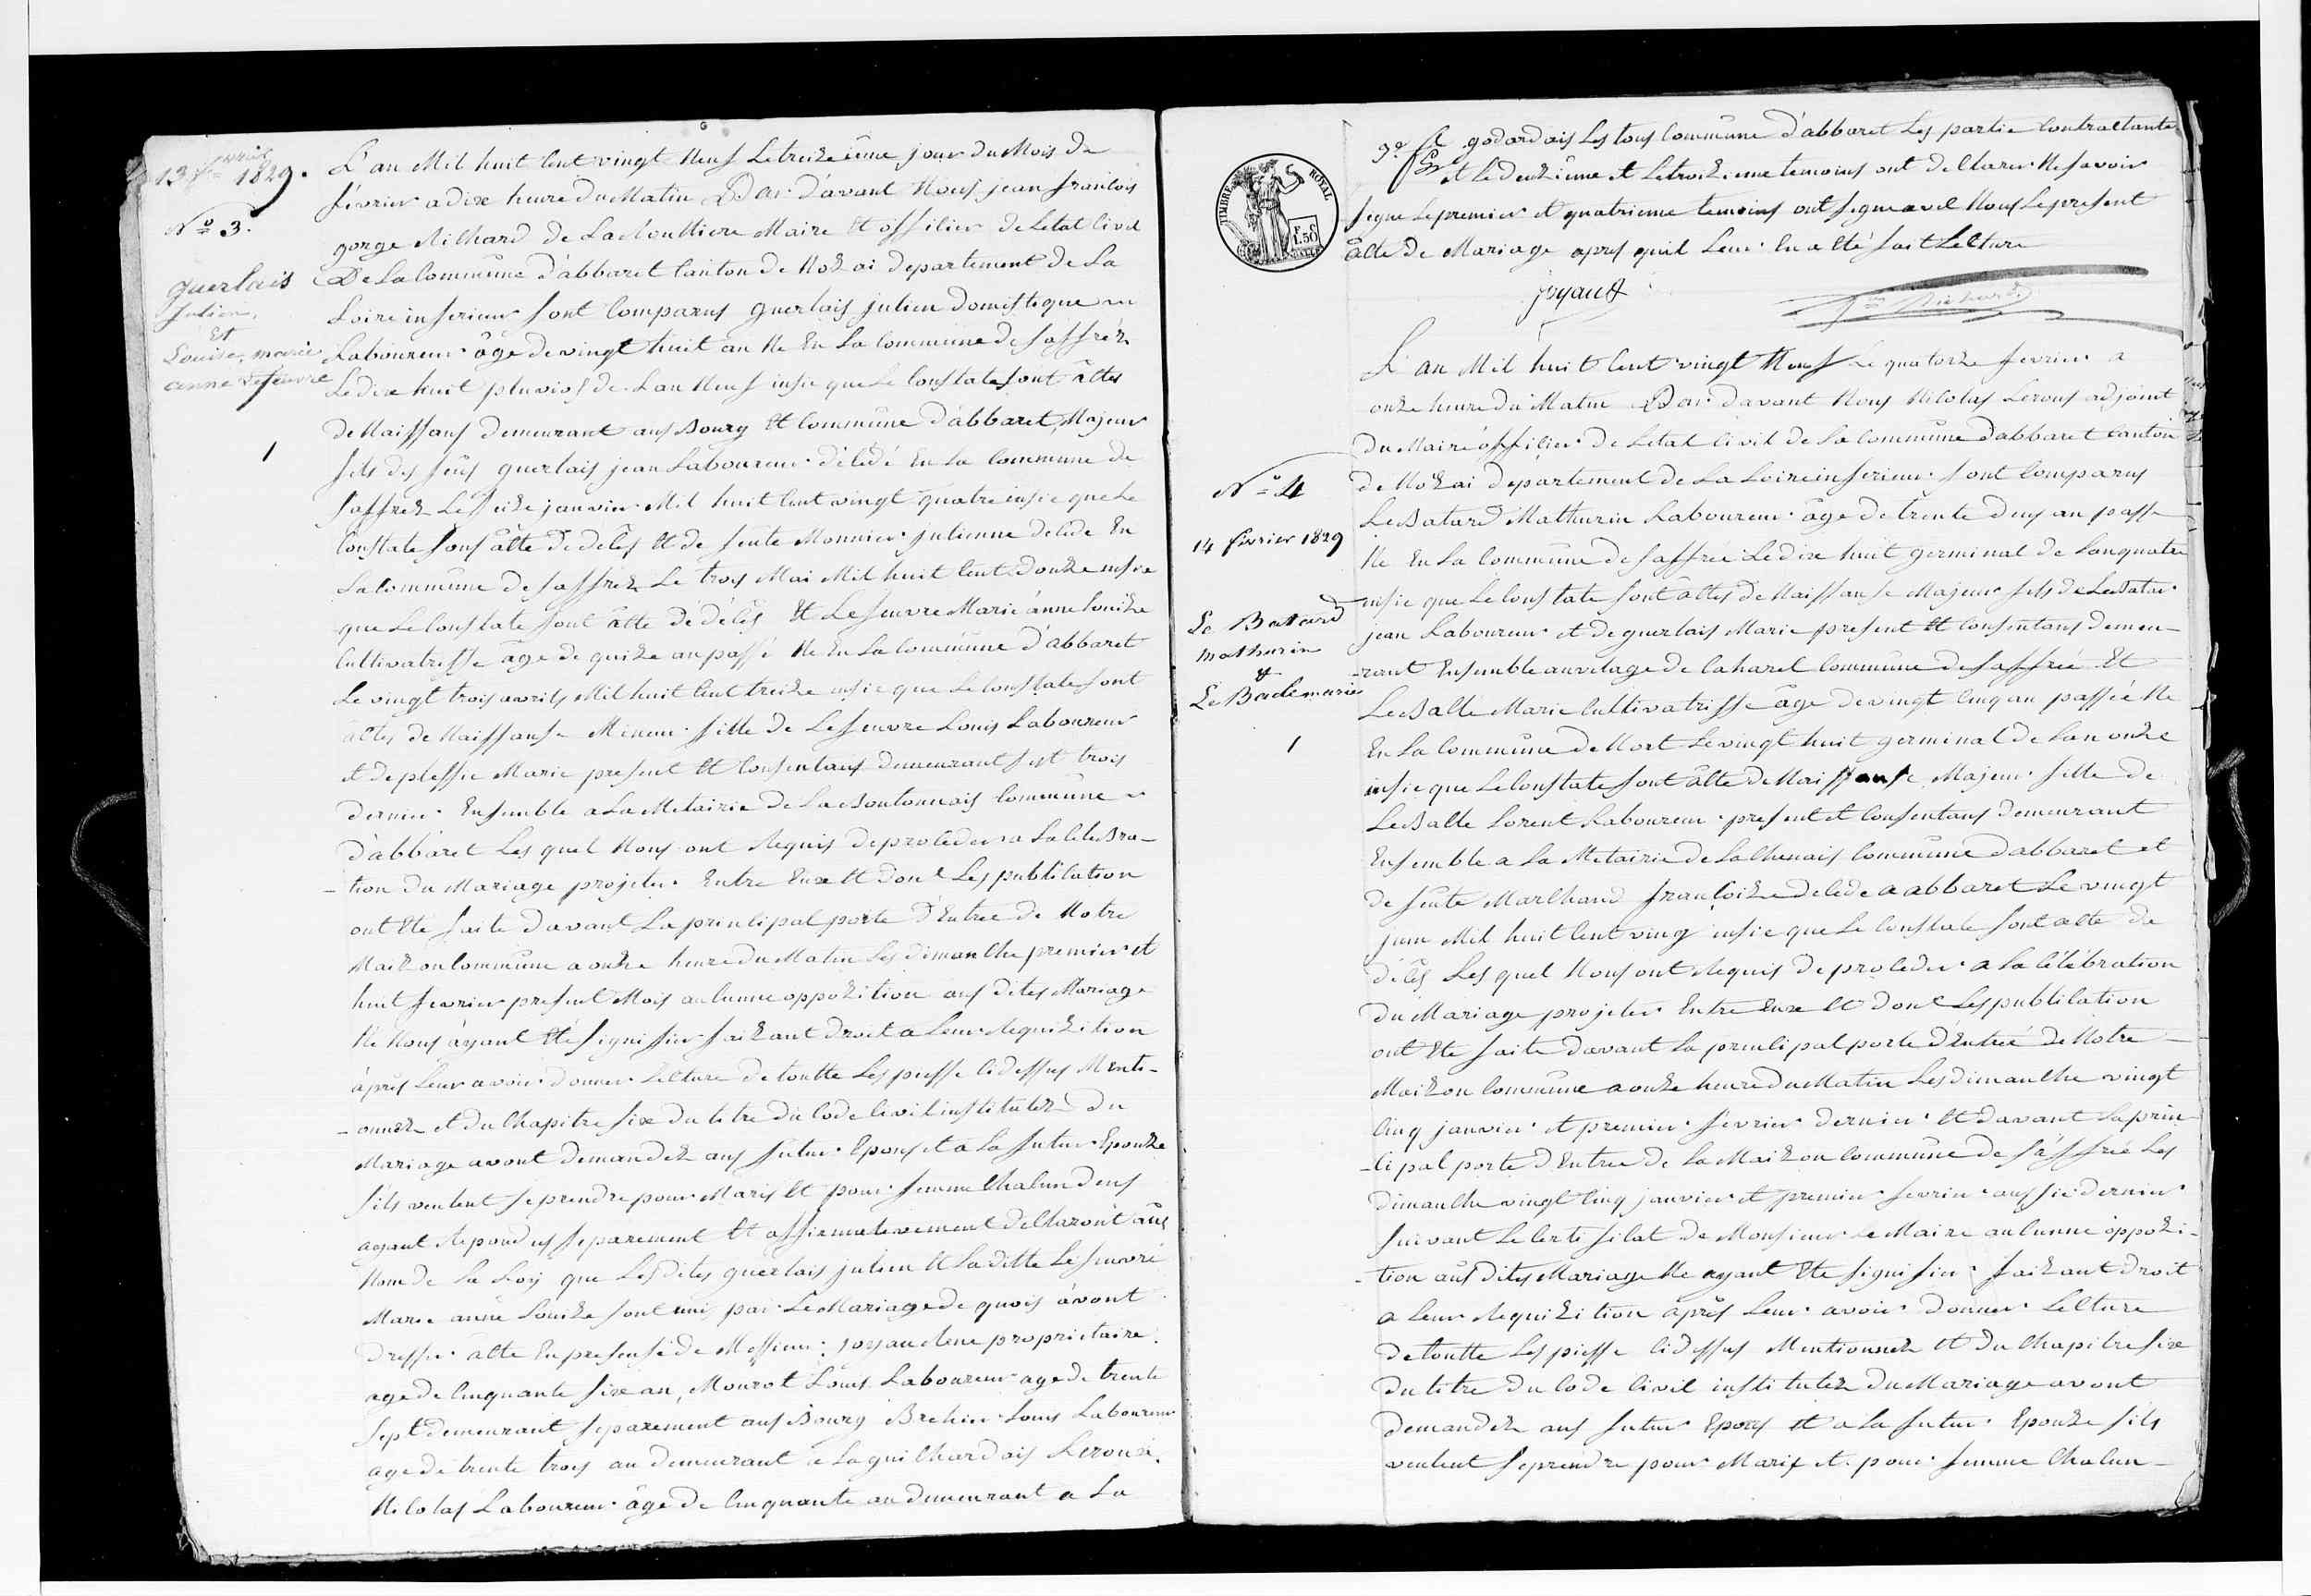 13 fev. 1829.
février
N° 3.
guerlais
Julien,
Et
Louise, marie
anne Lefeuvre
1
L'an Mil huit Cent vingt Neuf Letreizieûme jour du Mois de
février a dixe heure du Matin Par d'avant Nous, jean françois
gorge Richard de La Mouttiere Maire Et offilier de Letat Civil
De La Commûne d'abbaret Canton de Nozai departement de La
Loire inferieur sont Comparus guerlais julien Domestique
Laboureur âge de vingt huit an Ne En La Commune de saffréz
Ledixe huit pluviose de Lan Neuf insie que Le Constate sont âctes
de Naissans demeurant aus Bourg Et Commûne d'abbaret Majeur
fils des feus guerlais jean Laboureur décédé En La Commune de
saffrez Le seize janvier Mil huit Cent vingt quatre insie que Le
Constate sons âcte de décés Et de feute Monnier julienne décéde En
La Commûne de saffrez Le trois Mai Mil huit Cent douze insie
que Le Constate sont âcte de décés Et Lefeuvre Marie ânne Louize
Cultivatrisse âge de quize an passé Ne En La Commûne d'abbaret
Le vingt trois avrils Mil huit Cent treize insie que Le Constate sont
âctes de Naissanse Mineur fille de Lefeuvre Louis Laboureur
et de plessie Marie present Et Consentans demeurant
dernier Ensemble a La Metairie de La Boutonnais Commûne
d'abbaret Les quel Nous ont Requis de proceder a La Celebra-
-tion du Mariage projeter Entre Euxe Et dont Les publication
ont Ete faite davant La principal porte d'Entree de Notre
Maizon Commûne a onze heure du Matin Les dimanche premier et
huit fevrier present Mois aucunne oppozition aus dites Mariage
Ne Nous âyant Ete signifier faizant droit a Leur Requizition
âprés Leur avoir donner Lecture de toutte Les piesse Cidessus Menti-
-onnez et du Chapitre sixe du titre du Code Civil institulez du
Mariage avont demandez aus futur Epous et a La futur Epouze
s'ils veulent se prendre pour Maris Et pour femme Chacun deus
ayant Repondus separement Et affirmativement declaront aus
Nom de La Loy que Les dites guerlais julien Et La ditte Lefeuvre
Marie anne Louize sont uni par Le Mariage de quois âvont
dresser acte En presense de Messieur: joyau Rene proprietaire.
age de Cinquante sixe an, Mourot Louis Laboureur age de trente
sept demeurant separement aus Bourg Brehier Louis Laboureur
age de trente trois an demeurant a La guilhardais Lerouxe.
Nicolas Laboureur âge de Cinquante an demeurant a La
TIMBRE ROYAL
1.50
godardais Les tous Commûne d'abbaret Les partie Contractante
et Le deuzieûme et Letroizieme temoins ont déclarer Ne savoir
signe Le premier et quatrieme temoins ont signe avec Nous Le present
âcte de Mariage apres quil Leur En a Eté fait Lecture
joyau
Richard
N° 4
14 février 1829
Le Batard
mathurin
&
Le Bade marie
1
L'an Mil huit Cent vingt Neuf Le quatorze fevrier a
onze heure du Matin Par davant Nous Nicolas Lerous adjoint
du Maire officier de Letat Civil de La Commûne dabbaret Canton
de Nozai département de La Loire inferieur sont Comparus
LeBatard Mathurin Laboureur âge de trente deus an passe
Ne En La Commûne de saffrée Le dixe huit germinal de Lan quatre
insie que Le Constate sont âctes de Naissanse Majeur fils de LeBatar
jean Laboureur et de guerlais Marie present Et Consentans demeu-
-rant Ensemble au vilage de Caharel Commûne de saffrée Et
LeBalle Marie Cultivatrisse âge de vingt Cinq an passée Ne
En La Commûne de Nort Le vingt huit germinal de Lan onze
insie que Le Constate sont âcte de Naissanse Majeur fille de
LeBalle Lorent Laboureur present et Consentans demeurant
Ensemble a La Metairie de La Chenais Commûne dabbaret et
de feute Marchand françoize decede a abbaret Le vingt
juin Mil huit Cent ving insie que Le Constate sont acte de
décés Les quel Nous ont Requis de proceder a La célébration
du Mariage projeter Entre Euxe Et dont Les publication
ont Ete faite davant La principal porte d'Entrée de Notre
Maizon Commûne a onze heure du Matin Les dimanche vingt
Cinq janvier et premier fevrier dernier Et davant La prin
-cipal porte dEntree de La Maizon Commûne de sâffrée Les
dimanche vingt Cinq janvier et premier fevrier aussie dernier
suivant Le Certificat de Monsieur Le Maire aucunne oppozi-
-tion aus dites Mariage Ne ayant Ete signifier faizant droit
a Leur Requizition âprés Leur avoir donner Lecture
de toutte Les piesse Cidessus Mentionnez Et du Chapitre sixe
du titre du Code Civil institulez du Mariage avont
demandez aus futur Epous Et a La futur Epouze s'ils
veulent se prendre pour Maris et pour femme Chacun